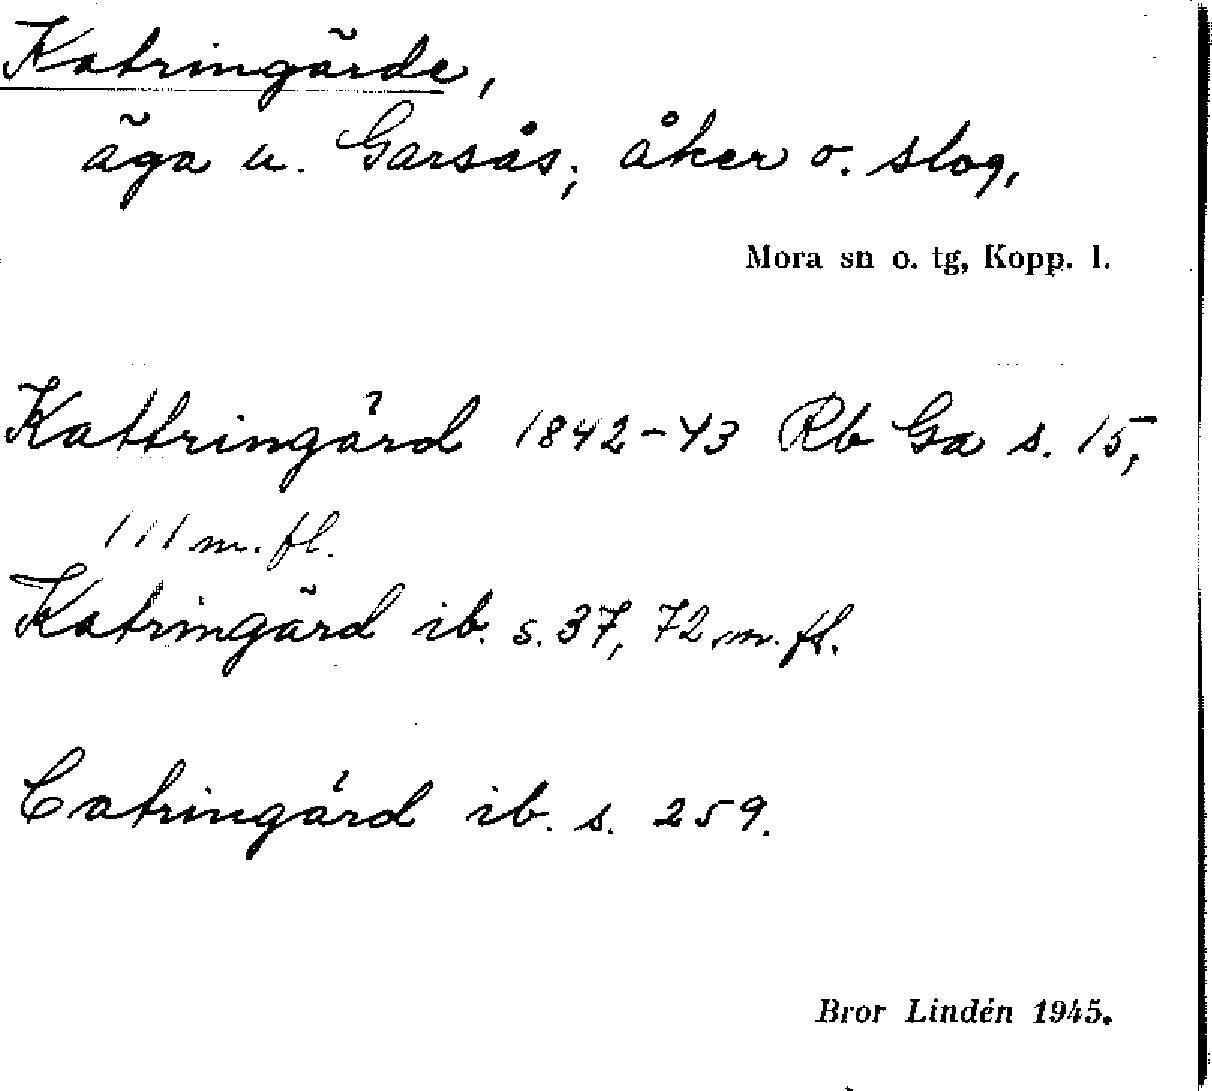 Katringärde,
äga u. Garsås; åker o. slog,
Mora sn o. tg, Kopp. l.
Kattringärd 1842-43 Rb Ga s. 15,
111 m. fl.
Katringärd ib. s. 37, 72 m. fl.
Catringärd ib. s. 259.
Bror Lindén 1945.